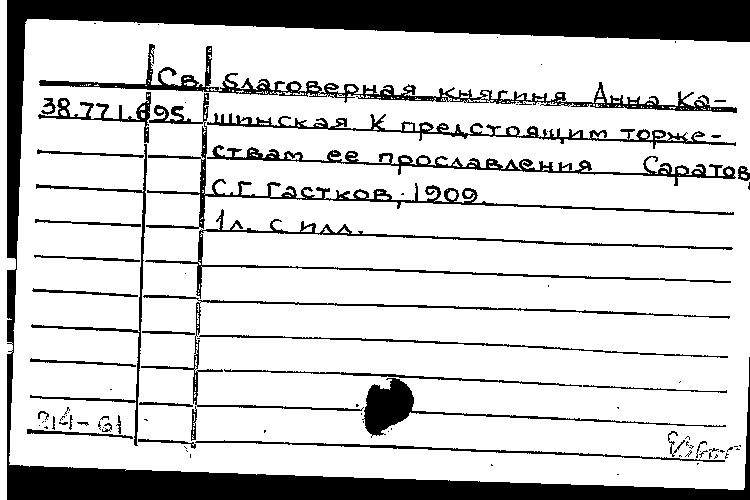 Св. благоверная княгиня Анна Ка-
38.771.695. шинская К предстоящим торже-
ствам ее прославления Саратов,
С.Г. Гастков, 1909.
1л. с илл.
214-61